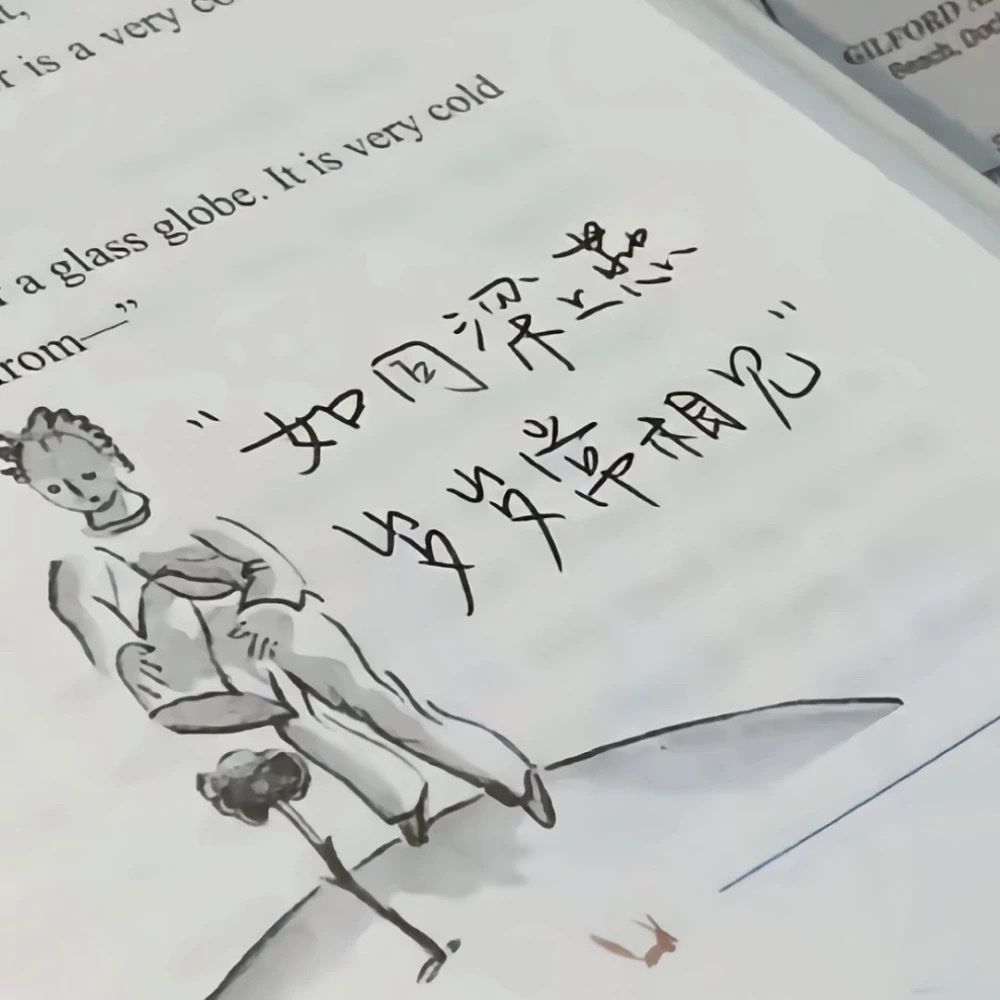 is a very
a glass globe. It is very cold
rom—”
“如同梁上燕
岁岁常相见”
GILFORD
Beach, Doc